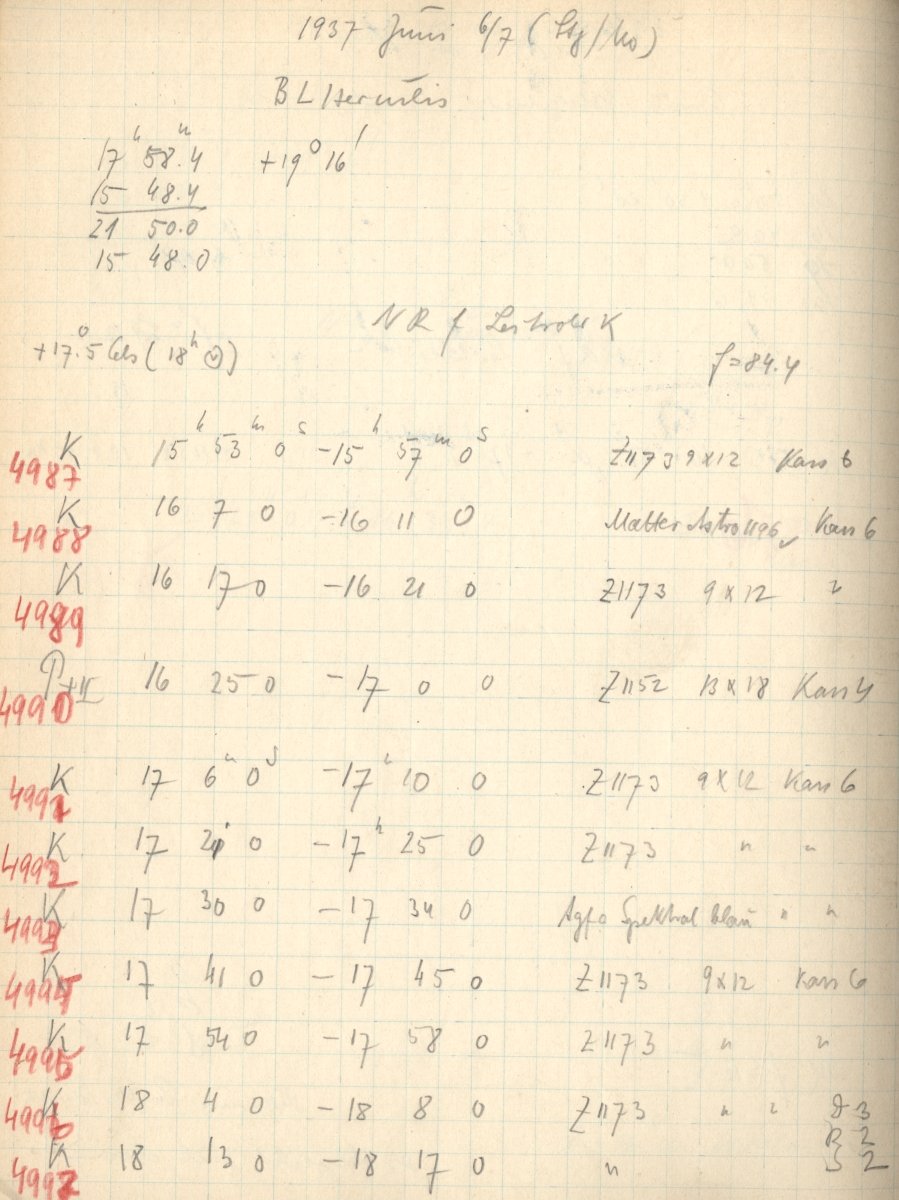 1937 Juni 6/7 (
BL Herculis
17h 58m.4 +19° 16'
15 48.4
21 50.0
15 48.0
NR f K
+17°.5 Cels (18h) f=84.4
K 4987 15h 53m 0s -15h 57m 0s Z1173 9x12 Kass 6
K 4988 16 7 0 -16 11 0 Astro 1196 Kass 6
K 4989 16 17 0 -16 21 0 Z1173 9x12 "
4990 16 25 0 -17 0 0 Z1152 13x18 Kass 4
K 4991 17 6m 0s -17h 10 0 Z1173 9x12 Kass 6
K 4992 17 21 0 -17h 25 0 Z1173 " "
K 4993 17 30 0 -17 34 0 Agfa Spektral blau " "
K 4994 17 41 0 -17 45 0 Z1173 9x12 Kass 6
K 4995 17 54 0 -17 58 0 Z1173 " "
K 4996 18 4 0 -18 8 0 Z1173 " " 3
R 2
K 4997 18 13 0 -18 17 0 " S 2